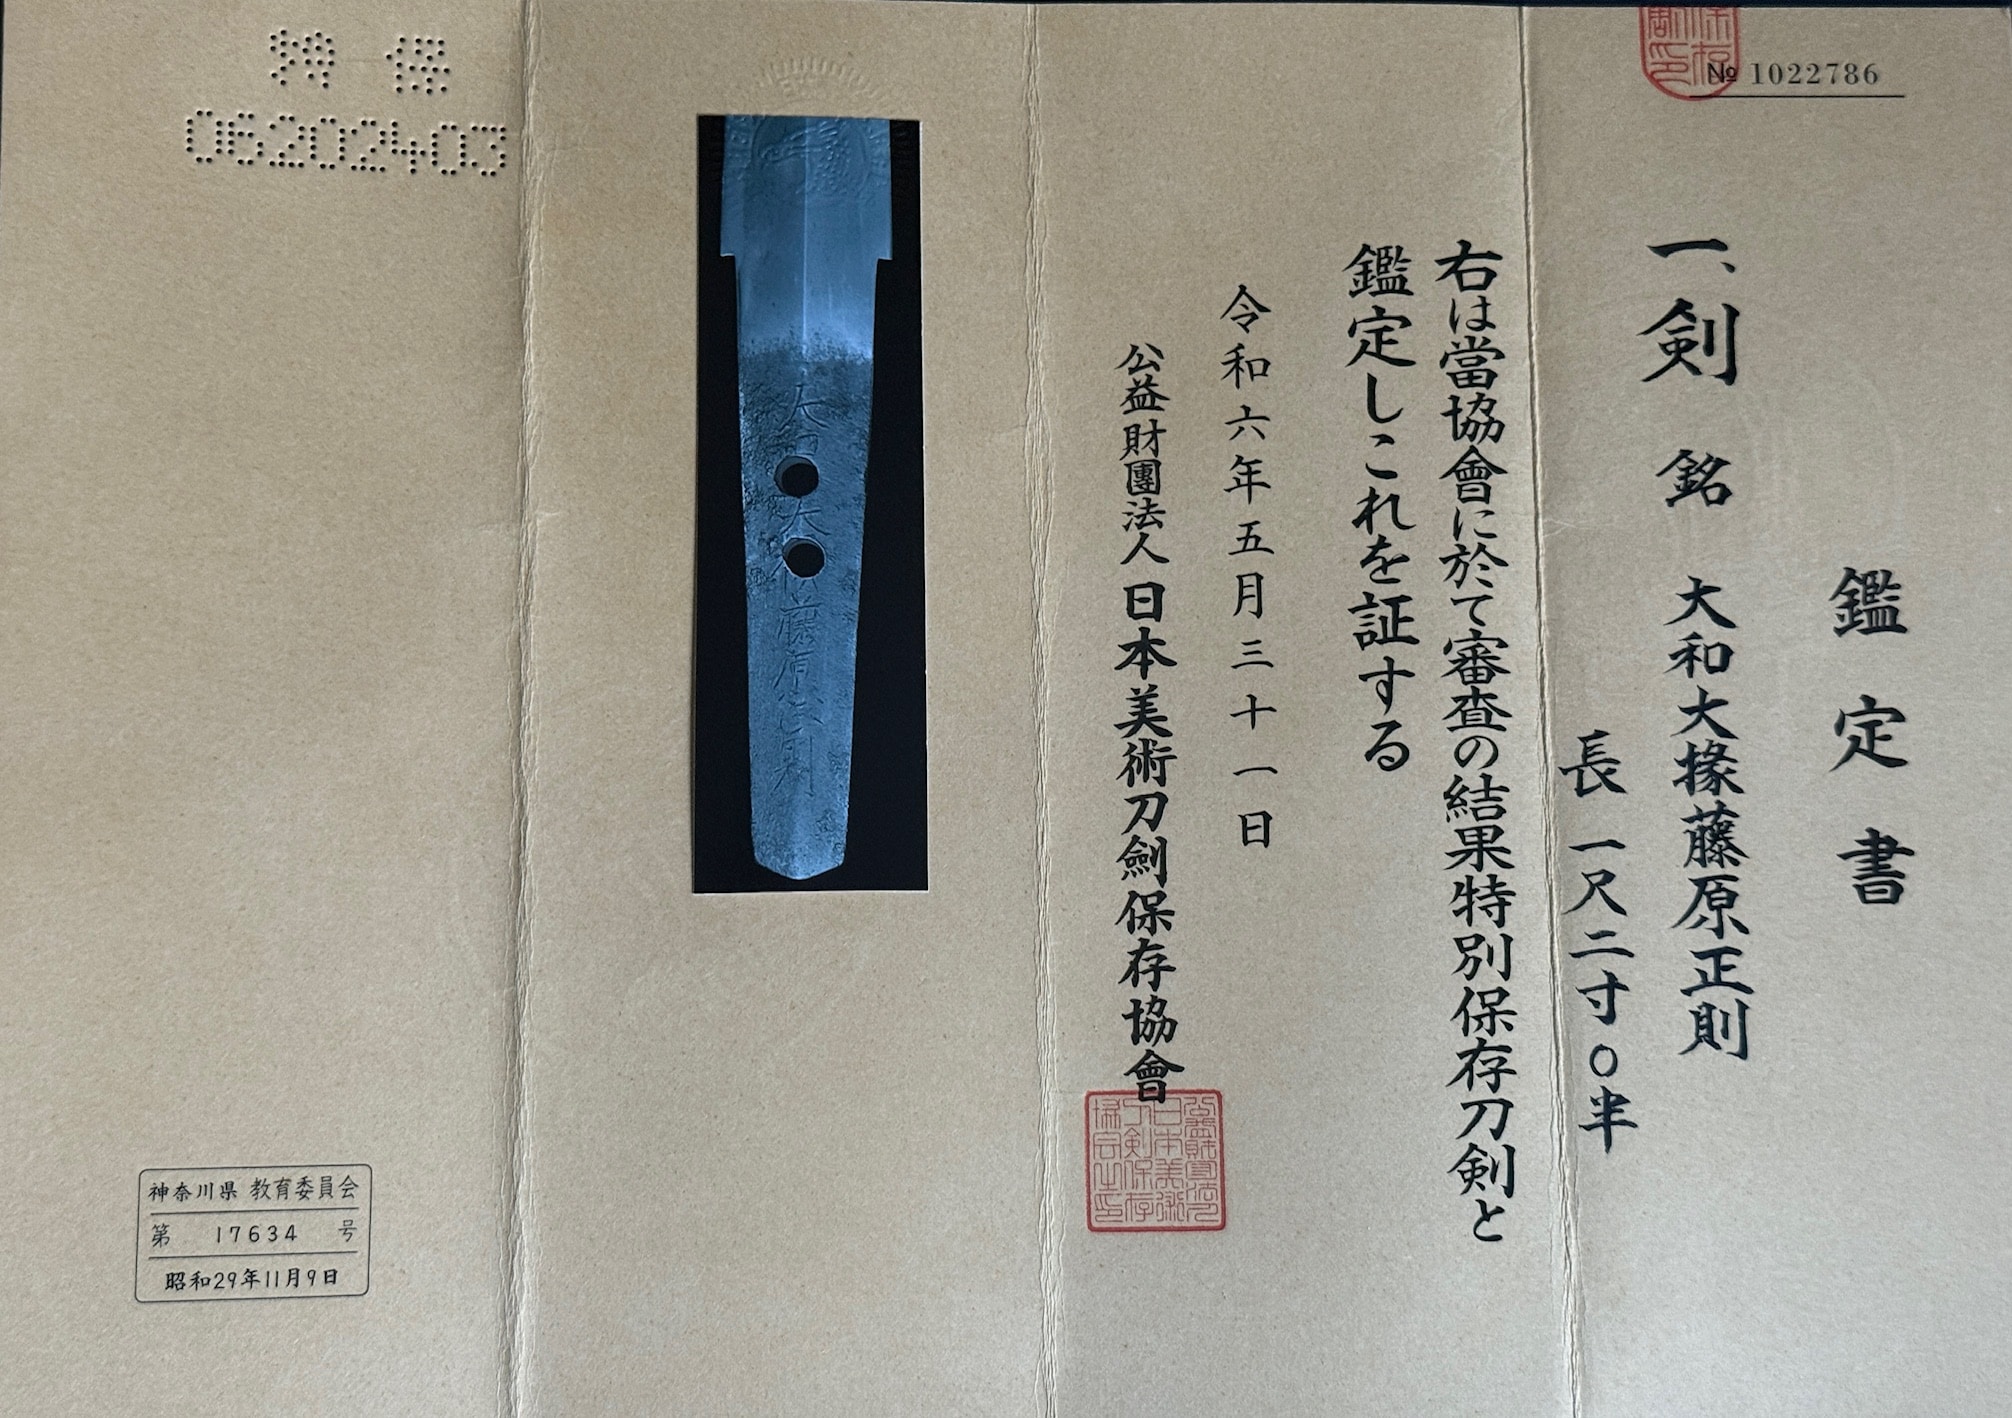 № 1022786
鑑定書
一、剣 銘 大和大掾藤原正則
長 一尺二寸〇半
右は當協會に於て審査の結果特別保存刀剣と
鑑定しこれを証する
令和六年五月三十一日
公益財團法人 日本美術刀劍保存協會
大和大掾藤原正則
特保
06202403
神奈川県 教育委員会
第 17634 号
昭和29年11月9日